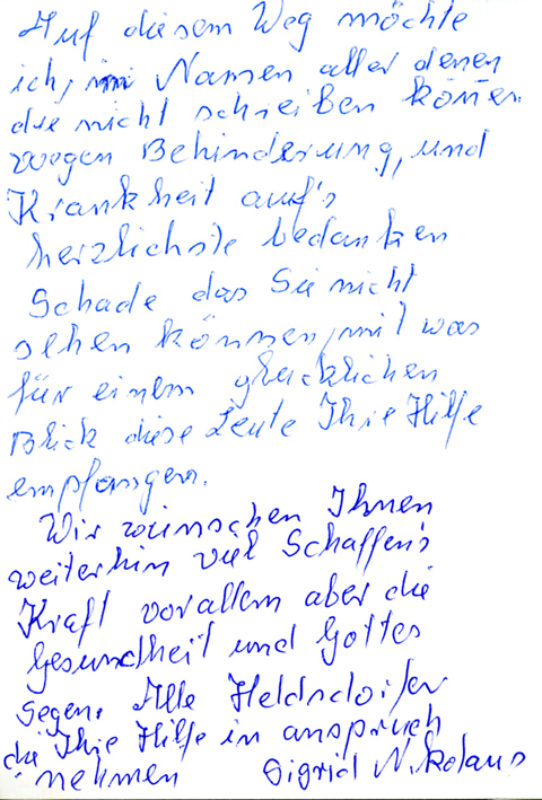 Auf diesem Weg möchte
ich, im Namen aller denen
die nicht schreiben können
wegen Behinderung, und
Krankheit auf's
herzlichste bedanken
Schade das Sie nicht
sehen können, mit was
für einem glücklichen
Blick diese Leute Ihre Hilfe
empfangen.
Wir wünschen Ihnen
weiterhin viel Schaffen's
Kraft vorallem aber die
Gesundheit und Gottes
Segen. Alle Heldsdorfer
die Ihre Hilfe in anspruch
nehmen Sigrid Nikolaus